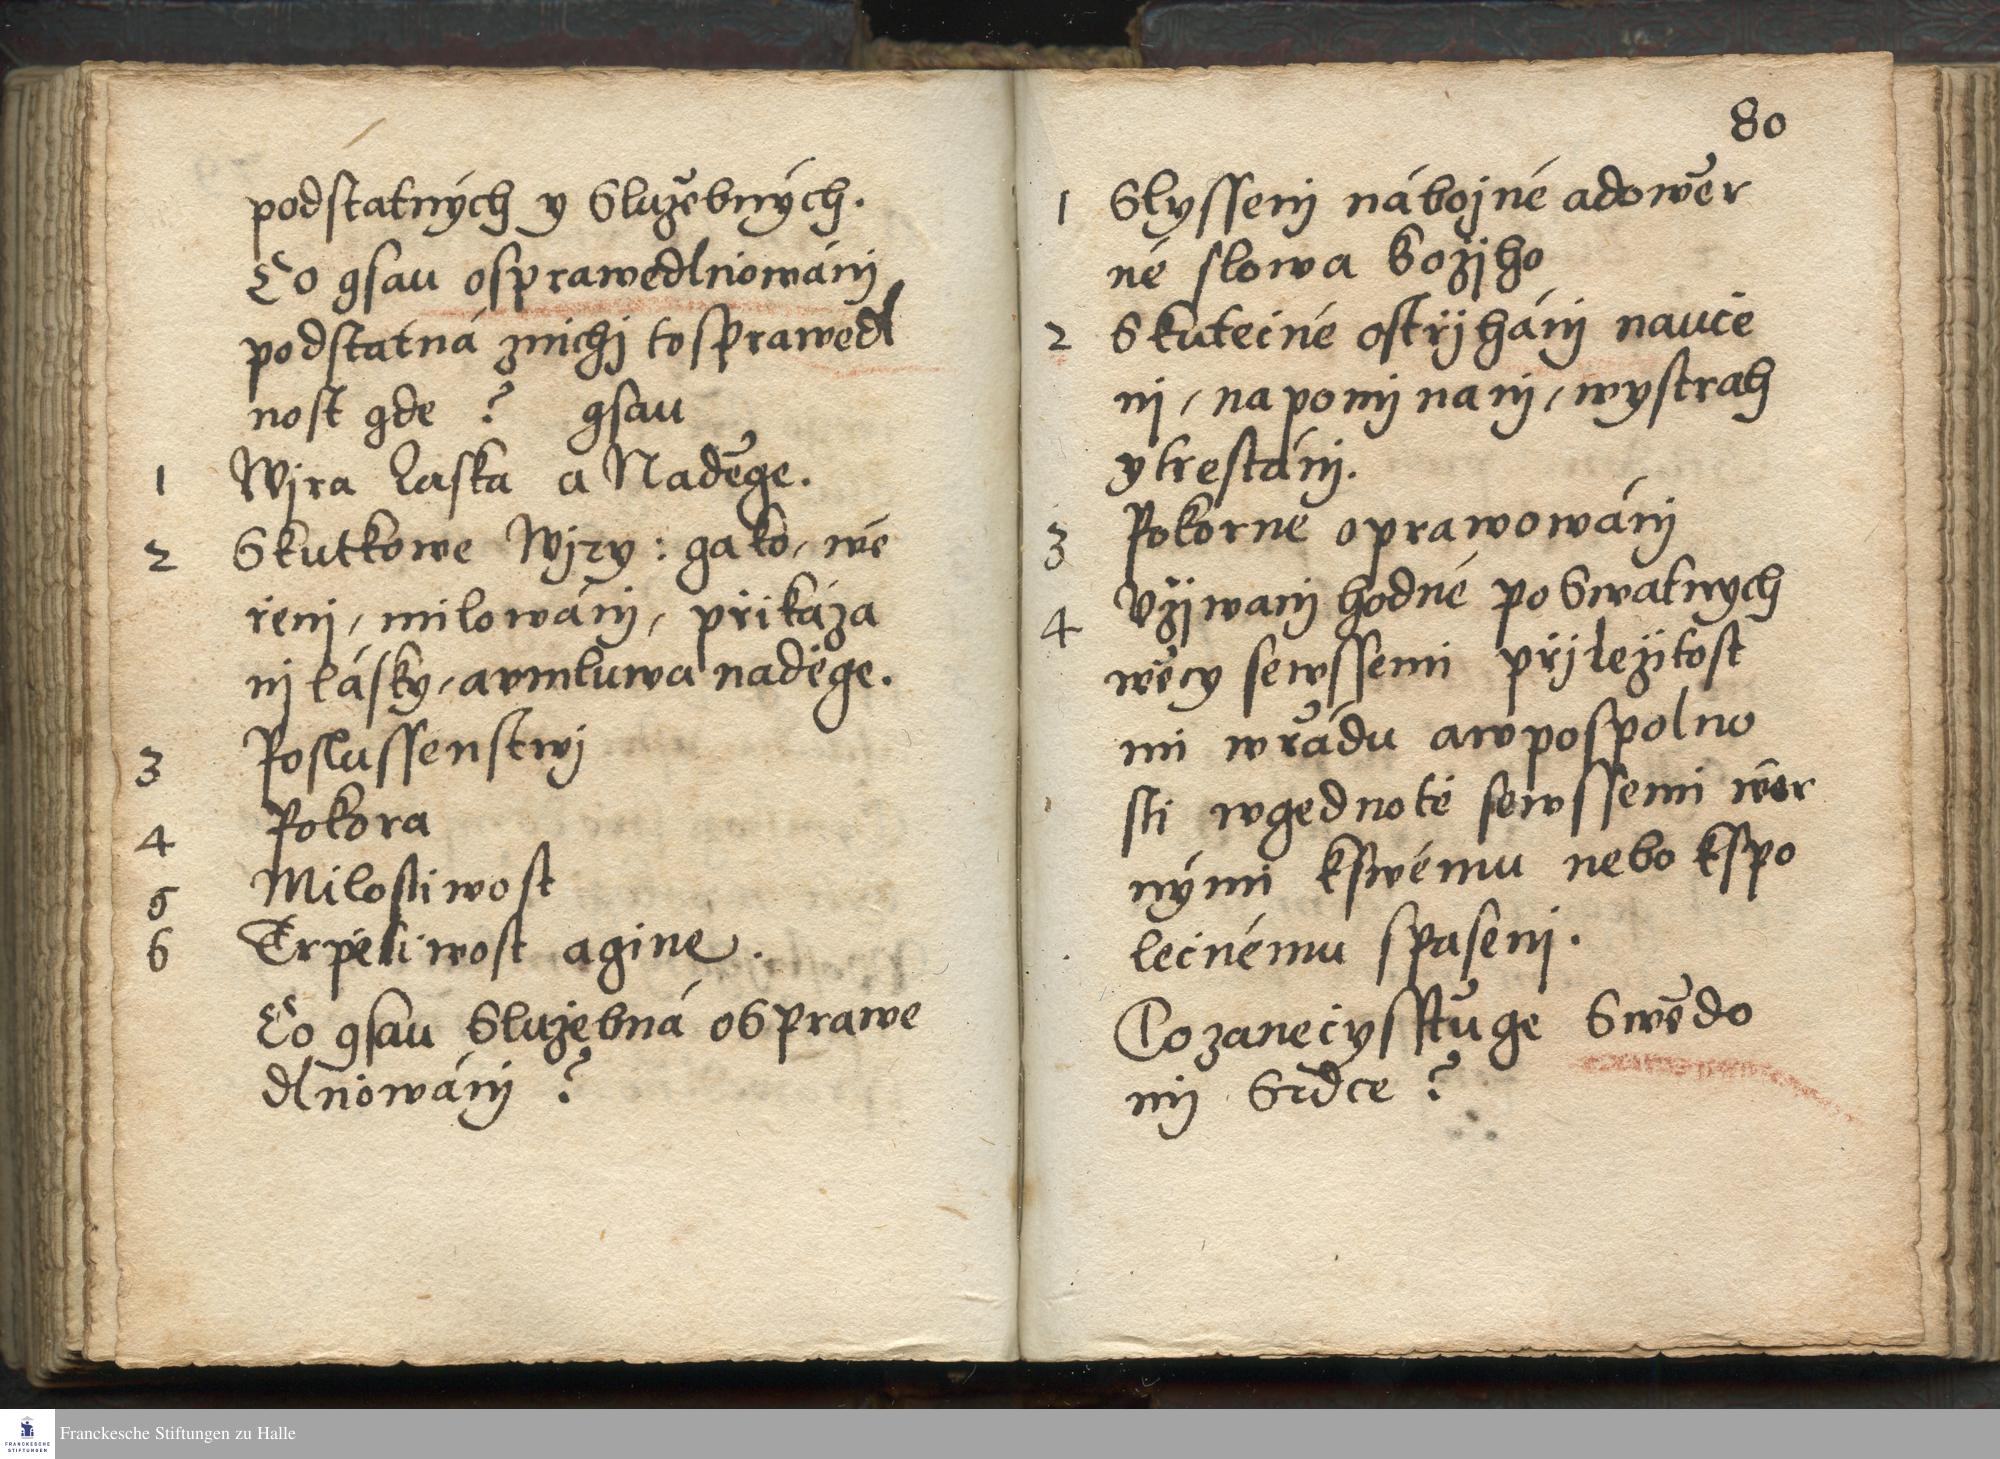 podstatných y Služebných.
Co gsau osprawedlniowánj
podstatná znichj tosprawedl
nost gde ? gsau
1 Wjra Laska a Naděge.
2 Skutkowe Wjry : gako, wě
řenj, milowánj, přikáza
nj lásky, a vmluwa naděge.
3 Poslussenstwj
4 Pokora
5 Milostiwost
6 Trpěliwost agine.
Co gsau Služebná osprawe
dlniowánj ?
80
1 Slyssenj nábojné adowěr
né slowa božjho
2 Skutečné ostřjhánj nauče
nj, napomjnanj, wystrah
ytrestánj.
3 Pokorne oprawowánj
4 Vžjwanj hodné poSwatnych
wěcy sewssemi přjležitost
mi wřádu awpospolno
sti wgednotě sewssemi wěr
nými kswému nebo kspo
lečnému spasenj.
Co zanecysstuge Swědo
mj Srdce ?
Franckesche Stiftungen zu Halle
FRANCKESCHE
STIFTUNGEN